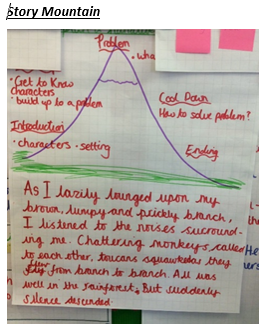 Story Mountain
Problem
• wha
• Get to Know
characters
• build up to a problem
Cool Down
How to solve problem?
Introduction
• characters • setting
Ending
As I lazily lounged upon my
brown, lumpy and prickly branch,
I listened to the noises surround-
ing me. Chattering monkeys called
to each other, toucans squawked as they
flew from branch to branch. All was
well in the rainforest. But suddenly
silence descended.
He